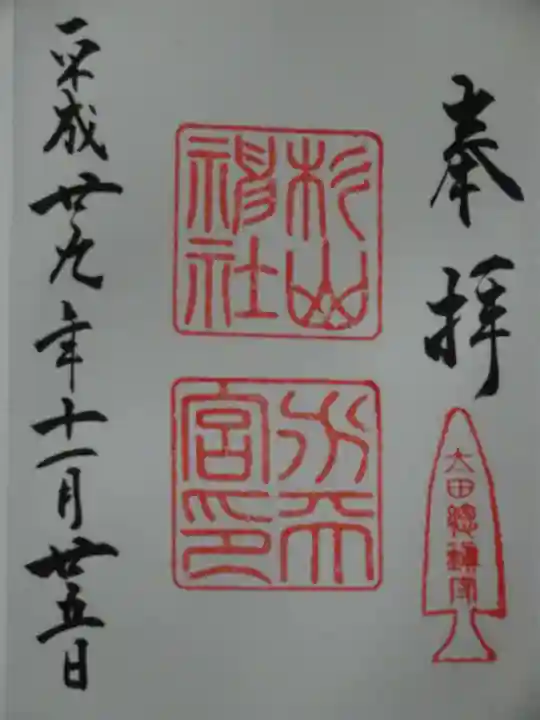 奉拝
太田總鎮守
杉山
神社
水天
宮印
平成廿九年十一月廿五日